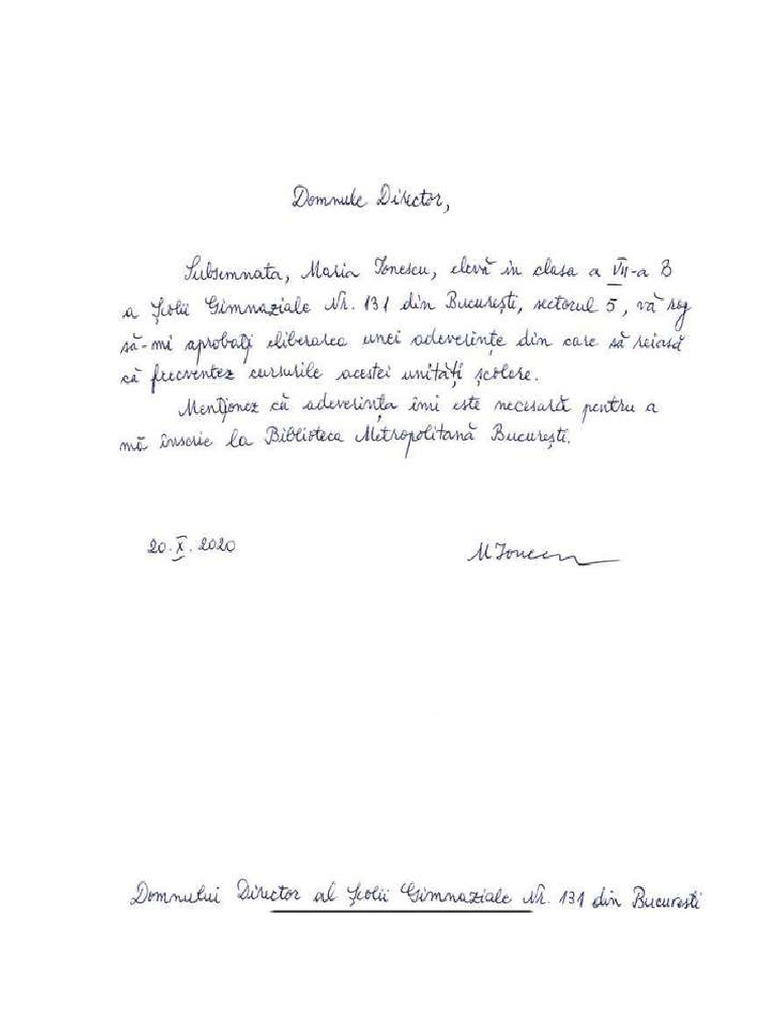 Domnule Director,
Subsemnata, Maria Ionescu, elevă în clasa a VII-a B
a Școlii Gimnaziale Nr. 131 din București, sectorul 5, vă rog
să-mi aprobați eliberarea unei adeverințe din care să reiasă
că frecventez cursurile acestei unități școlare.
Menționez că adeverința îmi este necesară pentru a
mă înscrie la Biblioteca Metropolitană București.
20.X.2020
MIonescu
Domnului Director al Școlii Gimnaziale Nr. 131 din București